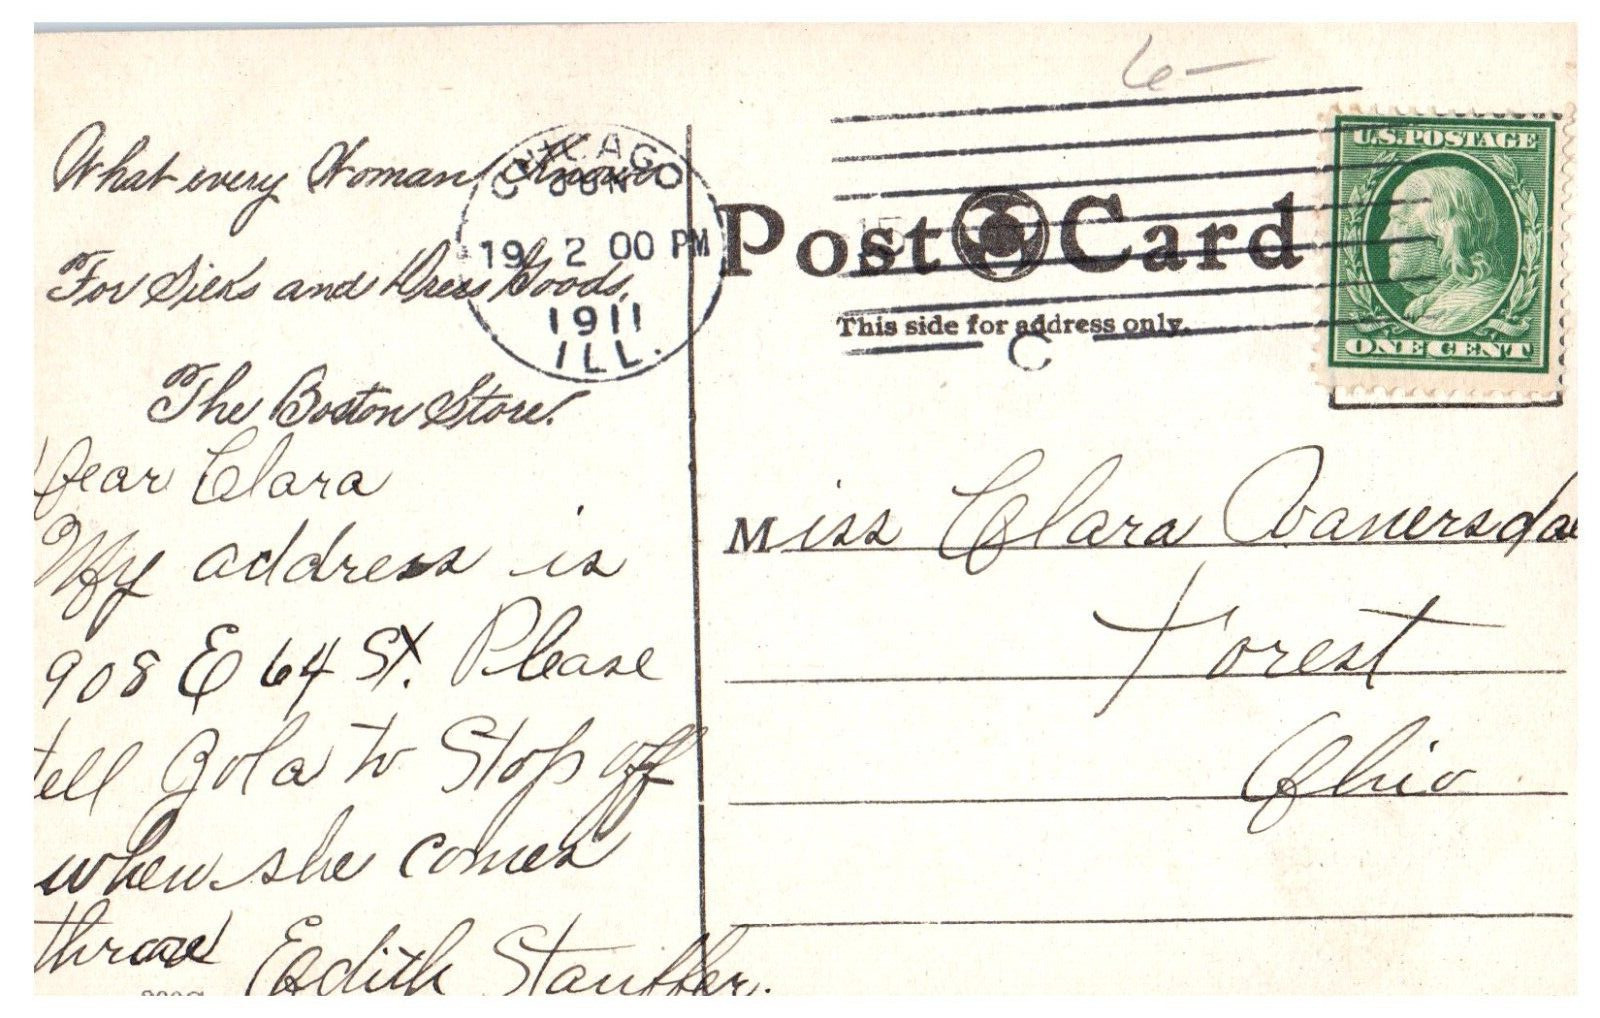 6-
What every Woman Knows
For Silks and Dress Goods,
The Boston Store.
Dear Clara
My address is
908 E 64 St. Please
tell Zola to Stop off
when she comes
Edith Stauffer.
CHICAGO
JUN
19 2 00 PM
1911
ILL.
Post Card
This side for address only.
C
U.S. POSTAGE
ONE CENT
Miss Clara Vanersdal
Forest
Ohio